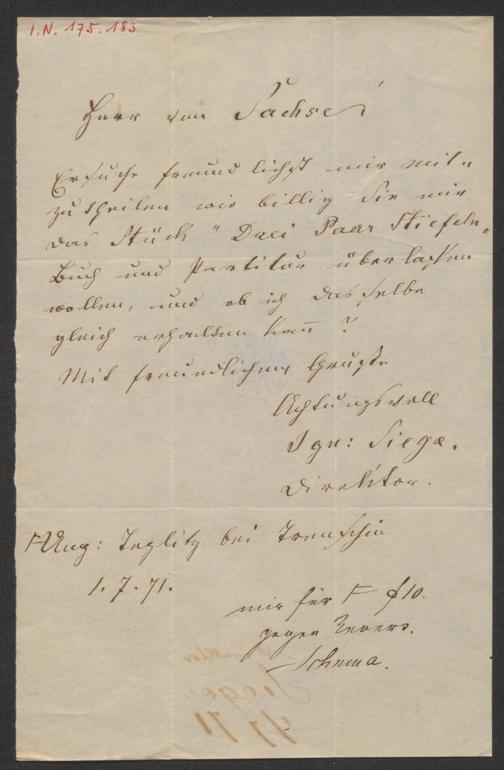 I.N. 175.183
Herr von Sachse!
Ersuche freundlichst mir mit-
zutheilen wie billig Sie mir
das Stück "Drei Paar Stiefeln"
Buch und Partitur überlassen
wollen, und ob ich dasselbe
gleich erhalten kann?
Mit freundlichem Gruße
Achtungsvoll
Ign: Siege.
Direktor.
Ung: Teplitz bei Trenschin
1.7.71.
mir für f 10.
gegen Revers.
Schema.